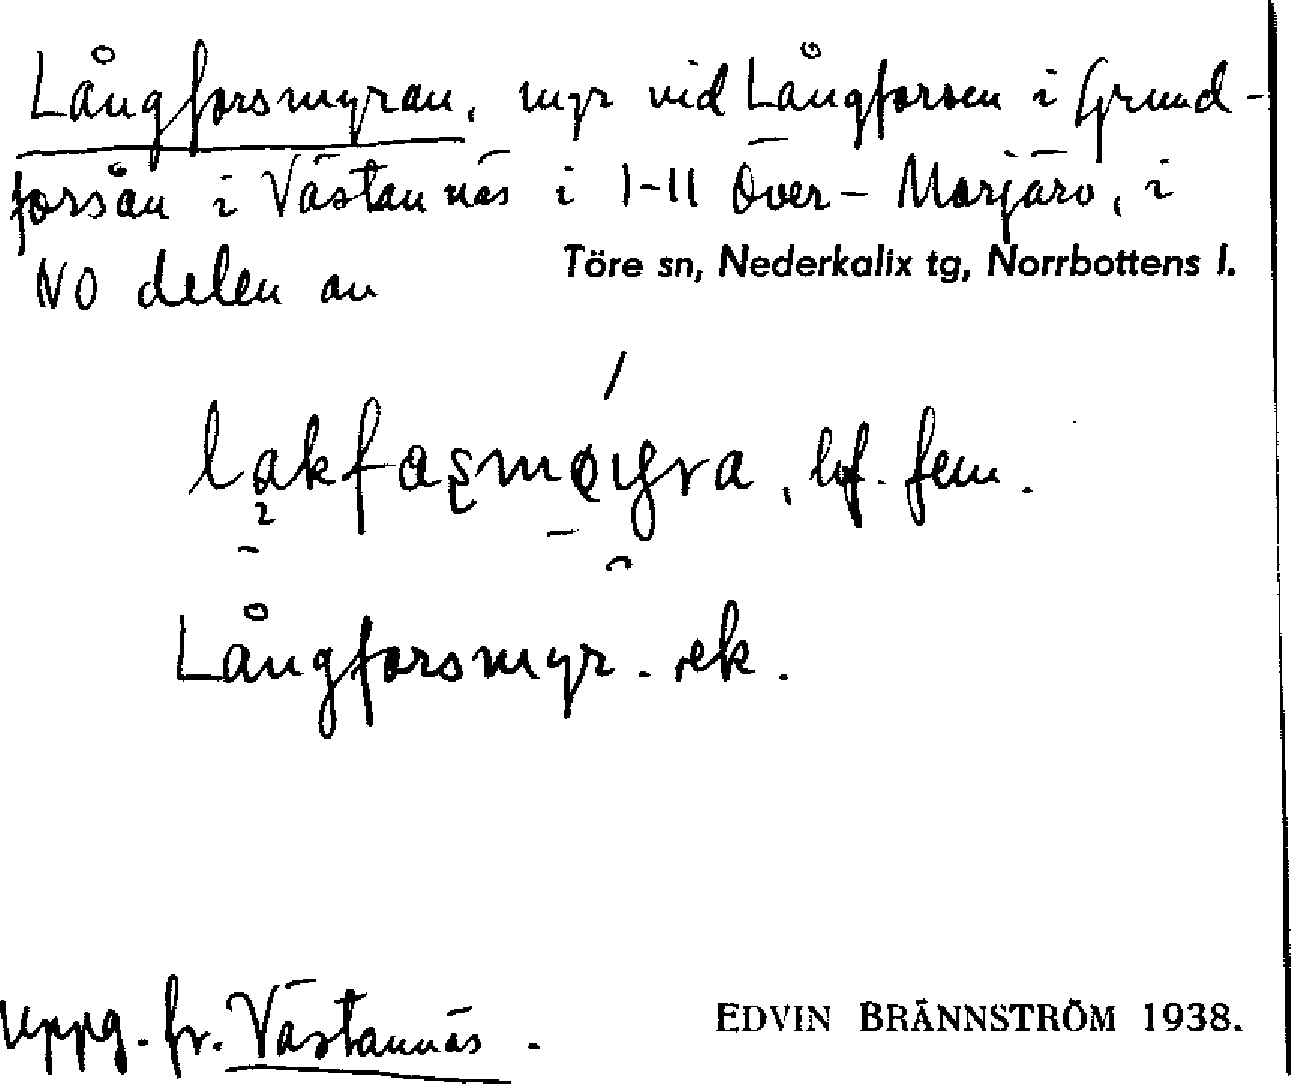 Långforsmyran, myr vid Långforsen i Grund-
forsån i Västannäs i 1-11 Över-Morjärv, i
NO delen av
Töre sn, Nederkalix tg, Norrbottens l.
bf. fem.
Långforsmyr. ek.
Uppg. fr. Västannäs.
EDVIN BRÄNNSTRÖM 1938.